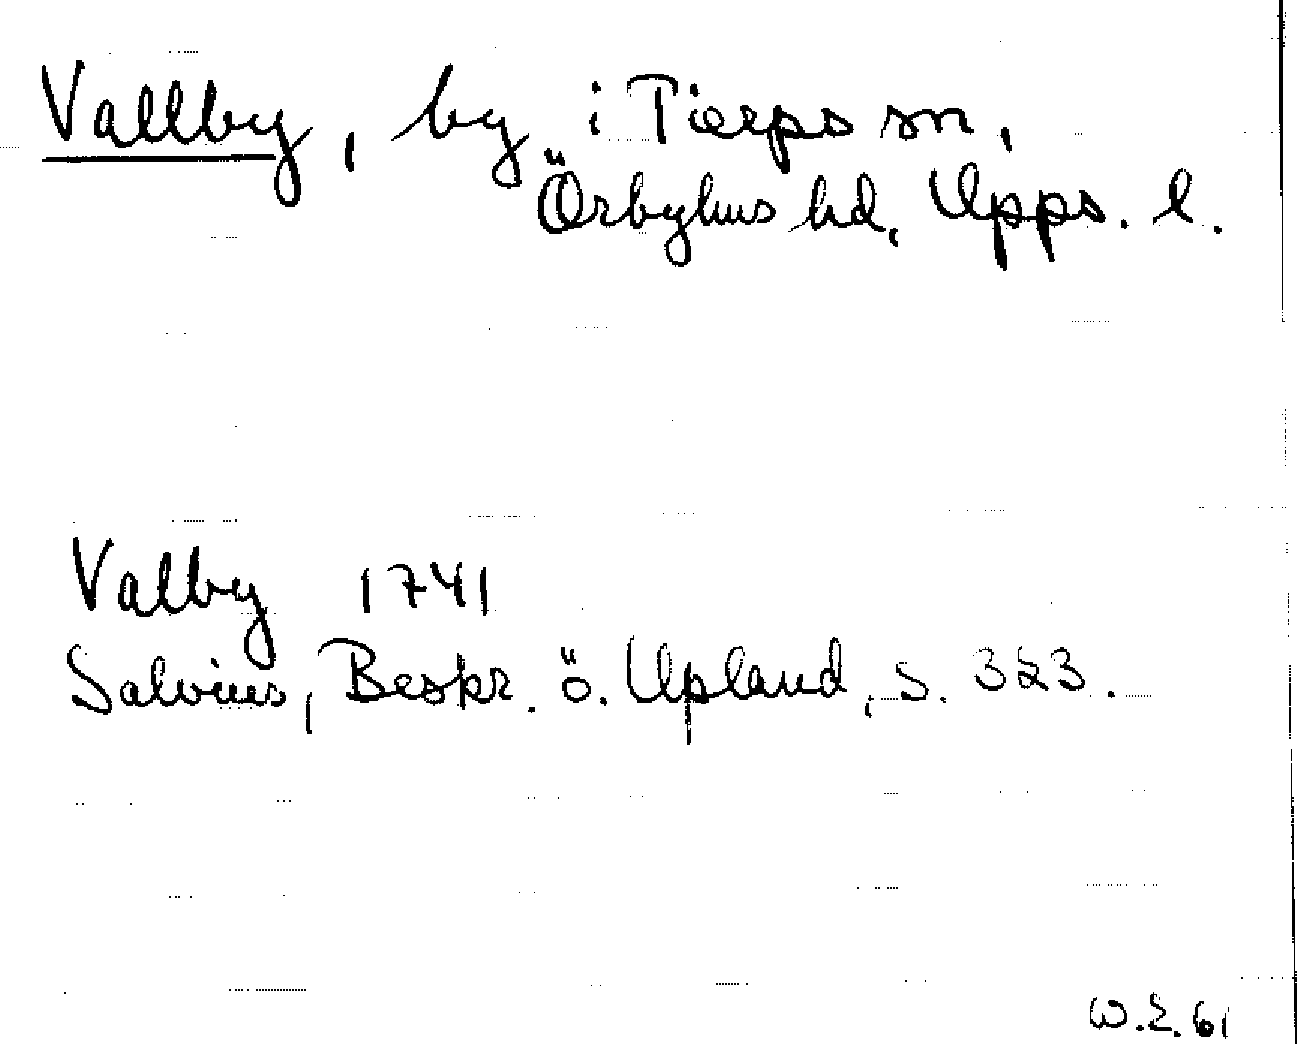 Vallby, by i Tierps sn,
Örbyhus hd, Upps. l.
Valby 1741
Salvius, Beskr. ö. Upland, s. 323.
W.E. 61